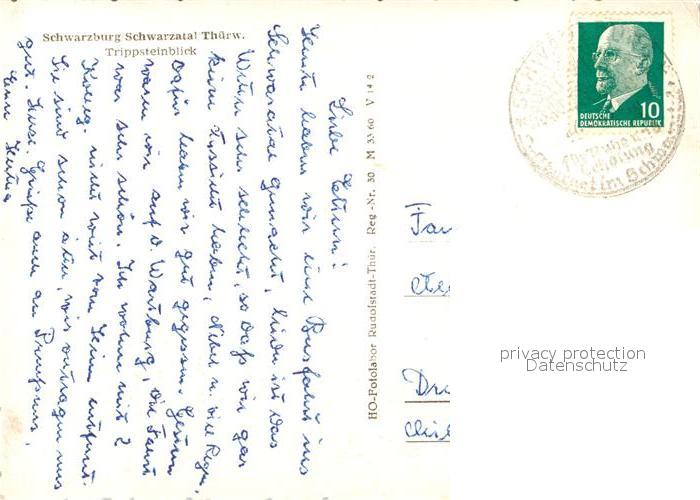 Schwarzburg Schwarzatal Thürw.
Trippsteinblick
Liebe
Heute haben wir eine Busfahrt ins
Schwarzatal gemacht, leider ist das
Wetter sehr schlecht, so daß wir gar
keine Aussicht haben, Nebel u. viel Regen,
dafür haben wir gut gegessen. Gestern
waren wir auf d. Wartburg, die Fahrt
war sehr schön. Ich wohne mit 2
Kolleg. nicht weit vom Heim entfernt.
Sie sind schon älter, wir vertragen uns
gut. Herzl. Grüße auch an
Eure Herta
HO-Fotolabor Rudolstadt-Thür. Reg-Nr. 30 M 33 60 V 14 2
10
DEUTSCHE
DEMOKRATISCHE REPUBLIK
SCHWARZ
Erholung
im Schwarza
Dre
privacy protection
Datenschutz